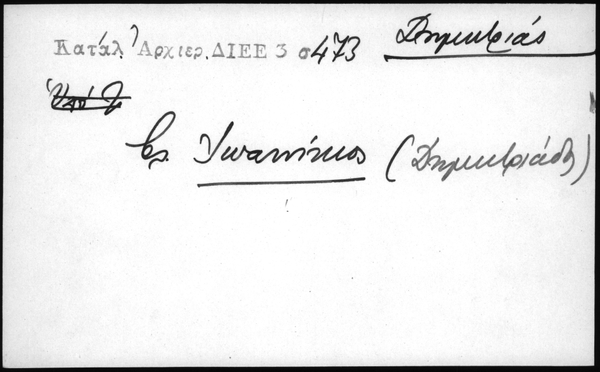 Κατάλ. Ἀρχιερ. ΔΙΕΕ 3 σ 473 Δημητριάς
Ἐπ. Ἰωαννίκιος (Δημητριάδος)